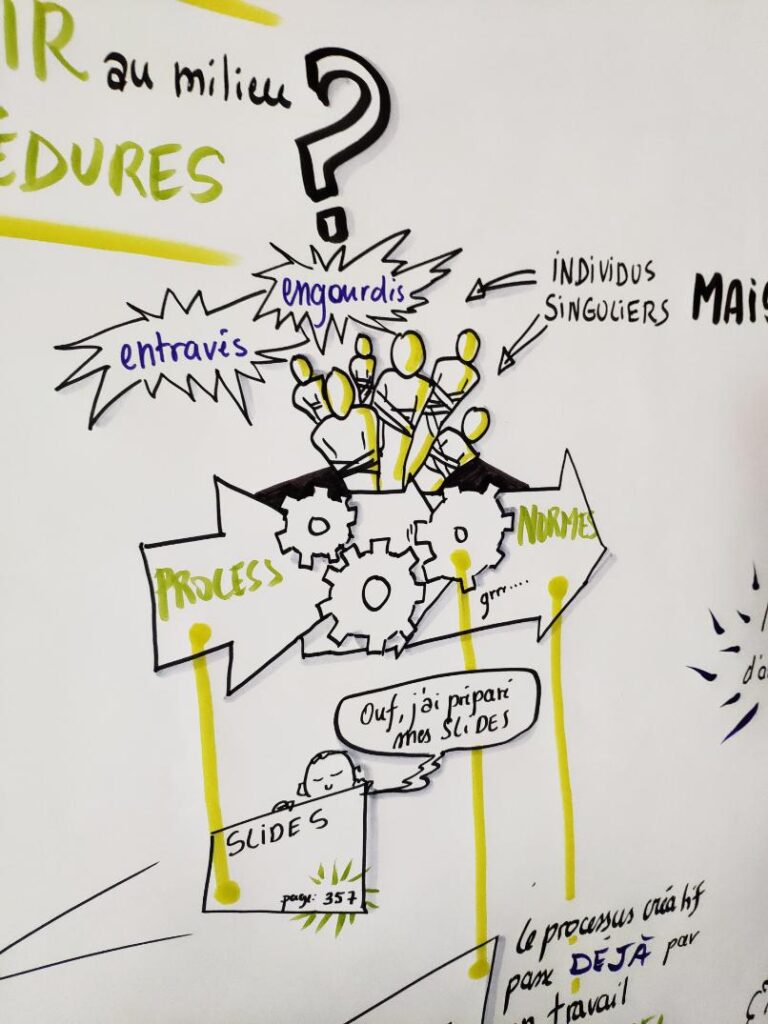 IR au milieu
ÉDURES
?
engourdis
entravés
INDIVIDUS
SINGULIERS
MAIS
PROCESS
NORMES
grrr....
Ouf, j'ai préparé
mes SLIDES
SLIDES
page: 357
Le processus créatif
passe DÉJÀ par
un travail